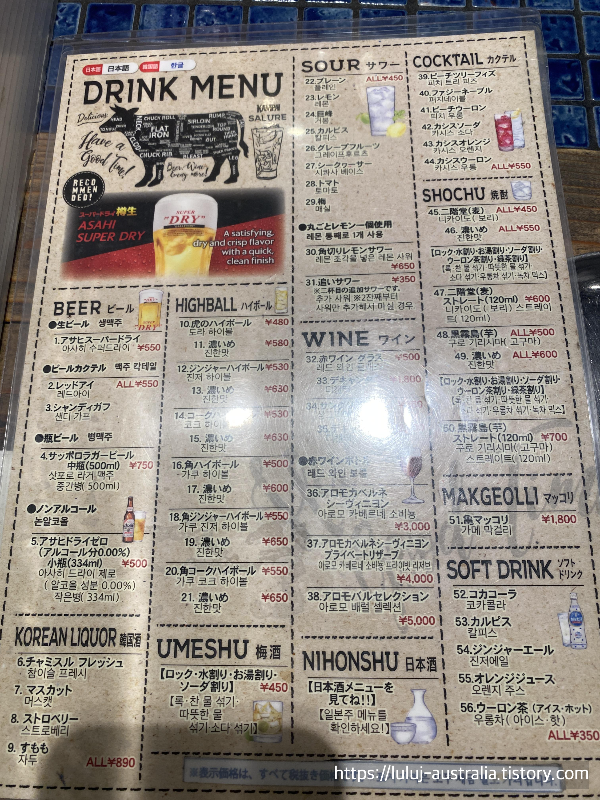 日本語 日本語 韓国語 한글
DRINK MENU
Delicious
Have a
Good Time!
NECK
CHUCK ROLL
FLAT
IRON
SIRLOIN
RUMP
CHUCK RIB
Beer, Wine
Every more!
SALURE
RECO
MMEN
DED!
スーパードライ 樽生
ASAHI
SUPER DRY
SUPER
"DRY"
A satisfying,
dry and crisp flavor
with a quick,
clean finish
BEER ビール
●生ビール 생맥주
1.アサヒスーパードライ
아사히 수퍼드라이 ¥550
●ビールカクテル 맥주 칵테일
2.レッドアイ ALL¥550
레드아이
3.シャンディガフ
샌디 가프
●瓶ビール 병맥주
4.サッポロラガービール
中瓶(500ml) ¥750
삿포로 라거 맥주
중간병(500ml)
●ノンアルコール
논알코올
5.アサヒドライゼロ
(アルコール分0.00%)
小瓶(334ml) ¥500
아사히 드라이 제로
(알코올 성분 0.00%)
작은병(334ml)
KOREAN LIQUOR 韓国酒
6.チャミスル フレッシュ
참이슬 프레시
7. マスカット
머스캣
8. ストロベリー
스트로베리
9. すもも
자두 ALL¥890
HIGHBALL ハイボール
10.虎のハイボール ¥480
토라 하이볼
11. 濃いめ ¥580
진한맛
12.ジンジャーハイボール ¥530
진저 하이볼
13. 濃いめ ¥630
진한맛
14.コークハイボール ¥530
코크 하이볼
15. 濃いめ ¥630
진한맛
16.角ハイボール ¥500
가쿠 하이볼
17. 濃いめ ¥600
진한맛
18.角ジンジャーハイボール ¥550
가쿠 진저 하이볼
19. 濃いめ ¥650
진한맛
20.角コークハイボール ¥550
가쿠 코크 하이볼
21. 濃いめ ¥650
진한맛
UMESHU 梅酒
【ロック・水割り・お湯割り・
ソーダ割り】 ¥450
【록·찬 물 섞기·
따뜻한 물
섞기·소다 섞기】
SOUR サワー
22.プレーン ALL¥450
플레인
23.レモン
레몬
24.巨峰
거봉
25.カルピス
칼피스
26.グレープフルーツ
그레이프후르츠
27.シークヮーサー
시콰사 베이스
28.トマト
토마토
29.梅
매실
●丸ごとレモン一個使用
레몬 통째로 1개 사용
30.角切りレモンサワー
레몬 조각을 넣은 레몬 사워
¥650
31.追いサワー ¥350
※二杯目の追加サワーです。
추가 사워 ※2잔째부터
사워만 추가해서 마실 경우
WINE ワイン
32.赤ワイン グラス ¥500
33.デキャンタ 1,800
●赤ワインボトル
레드 와인 보틀
36.アロモカベルネ
シーヴィニヨン
아로모 카베르네 소비뇽
¥3,000
37.アロモカベルネシーヴィニヨン
プライベートリザーブ
아로모 카베르네 소비뇽 프라이빗 리저브
¥4,000
38.アロモバルセレクション
아로모 배럴 셀렉션
¥5,000
NIHONSHU 日本酒
【日本酒メニューを
見てね!!】
【일본주 메뉴를
확인하세요!】
COCKTAIL カクテル
39.ピーチツリーフィズ
피치 트리 피스
40.ファジーネーブル
퍼지네이블
41.ピーチウーロン
피치 우롱
42.カシスソーダ
카시스 소다
43.カシスオレンジ
카시스 오렌지
44.カシスウーロン
카시스 우롱 ALL¥550
SHOCHU 焼酎
45.二階堂(麦) ALL¥450
니카이도(보리)
46. 濃いめ ALL¥550
진한맛
【ロック・水割り・お湯割り・ソーダ割り・
ウーロン茶割り・緑茶割り】
【록·찬 물 섞기·따뜻한 물 섞기·
소다 섞기·우롱차 섞기·녹차 믹스】
47.二階堂(麦)
ストレート(120ml) ¥600
니카이도(보리) 스트레이
트(120ml)
48.黒霧島(芋) ALL¥500
구로 기리시마(고구마)
49. 濃いめ ALL¥600
진한맛
【ロック・水割り・お湯割り・ソーダ割り・
ウーロン茶割り・緑茶割り】
50.黒霧島(芋)
ストレート(120ml) ¥700
구로 기리시마(고구마)
스트레이트(120ml)
MAKGEOLLI マッコリ
51.亀マッコリ ¥1,800
가메 막걸리
SOFT DRINK ソフトドリンク
52.コカコーラ
코카콜라
53.カルピス
칼피스
54.ジンジャーエール
진저에일
55.オレンジジュース
오렌지 주스
56.ウーロン茶(アイス・ホット)
우롱차(아이스·핫)
ALL¥350
※表示価格は、すべて税抜き価
https://luluj-australia.tistory.com